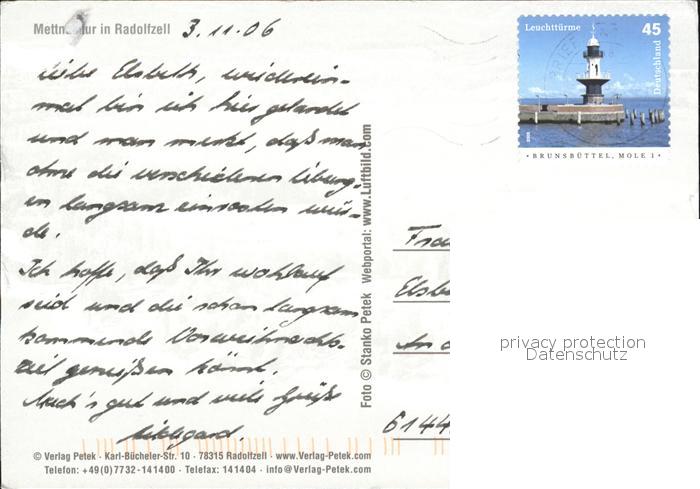 Mettnaukur in Radolfzell 3.11.06
Leuchttürme 45
Deutschland
BRUNSBÜTTEL, MOLE 1
liebe Elsbeth, wiederein-
mal bin ich hier gelandet
und man merkt, daß man
ohne die verschiedenen Übung-
en langsam einrosten wür-
de.
Ich hoffe, daß Ihr wohlauf
seid und die schon langsam
kommende Vorweihnachts-
zeit genießen könnt.
Mach's gut und viele Grüße
Hildegard.
Foto © Stanko Petek Webportal: www.Luftbild.com
Frau
Elsbe
An d
6144
privacy protection
Datenschutz
© Verlag Petek · Karl-Bücheler-Str. 10 · 78315 Radolfzell · www.Verlag-Petek.com
Telefon: +49(0)7732-141400 · Telefax: 141404 · info@Verlag-Petek.com